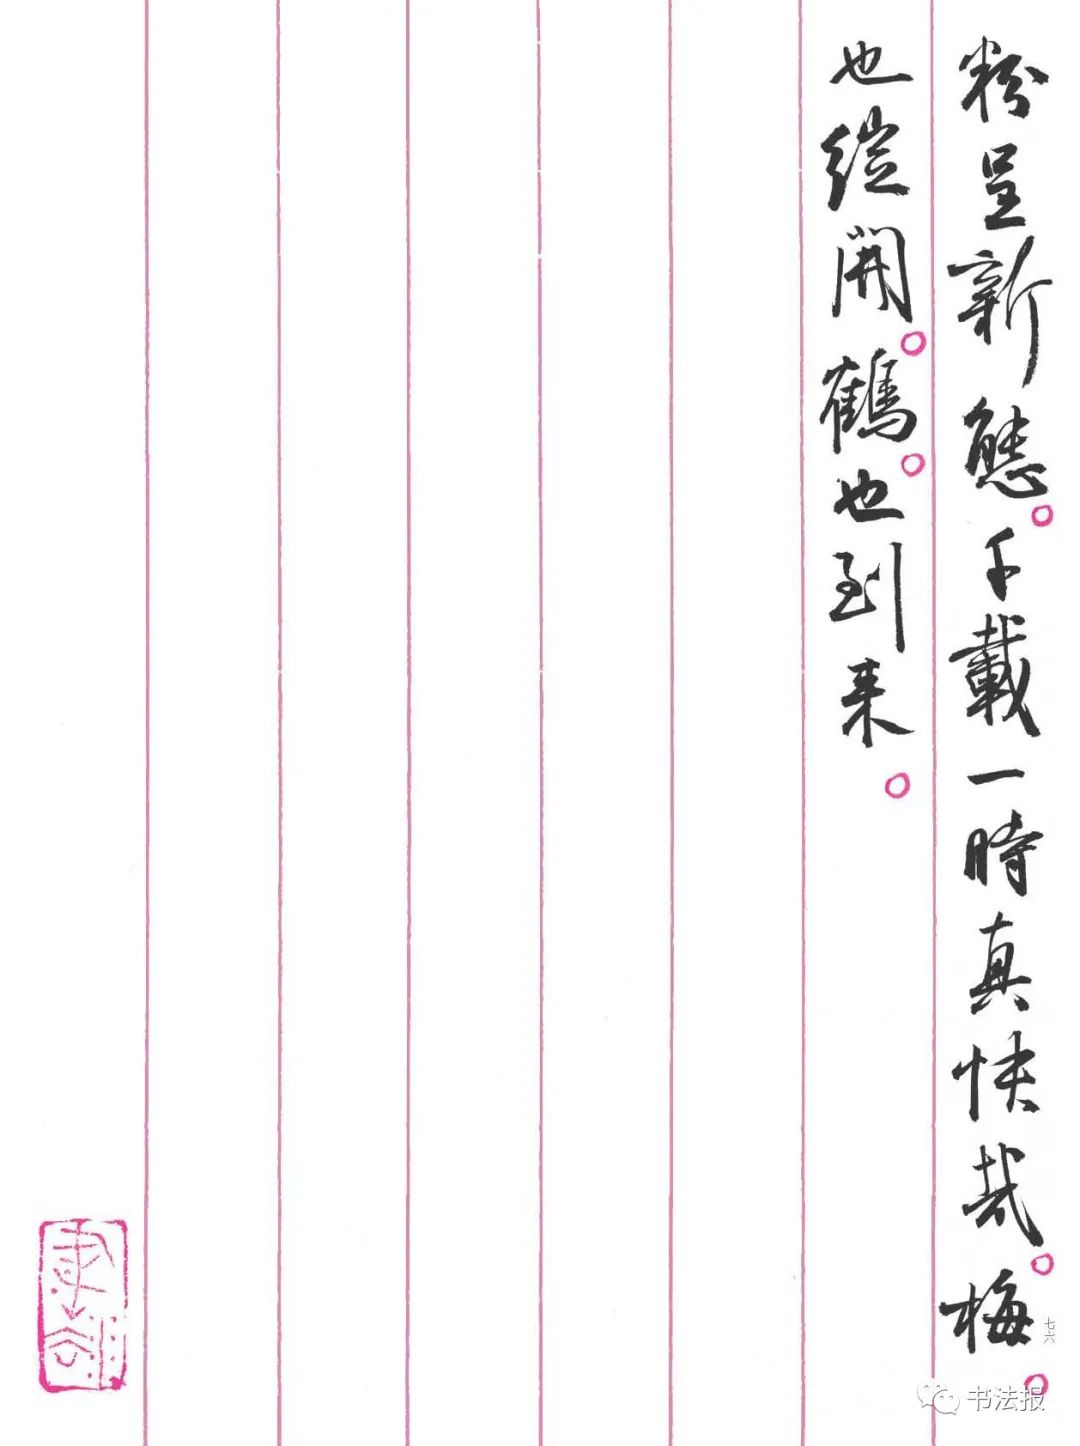 粉呈新態。千載一時真快哉。梅。
也綻開。鶴。也到来。
七六
书法报